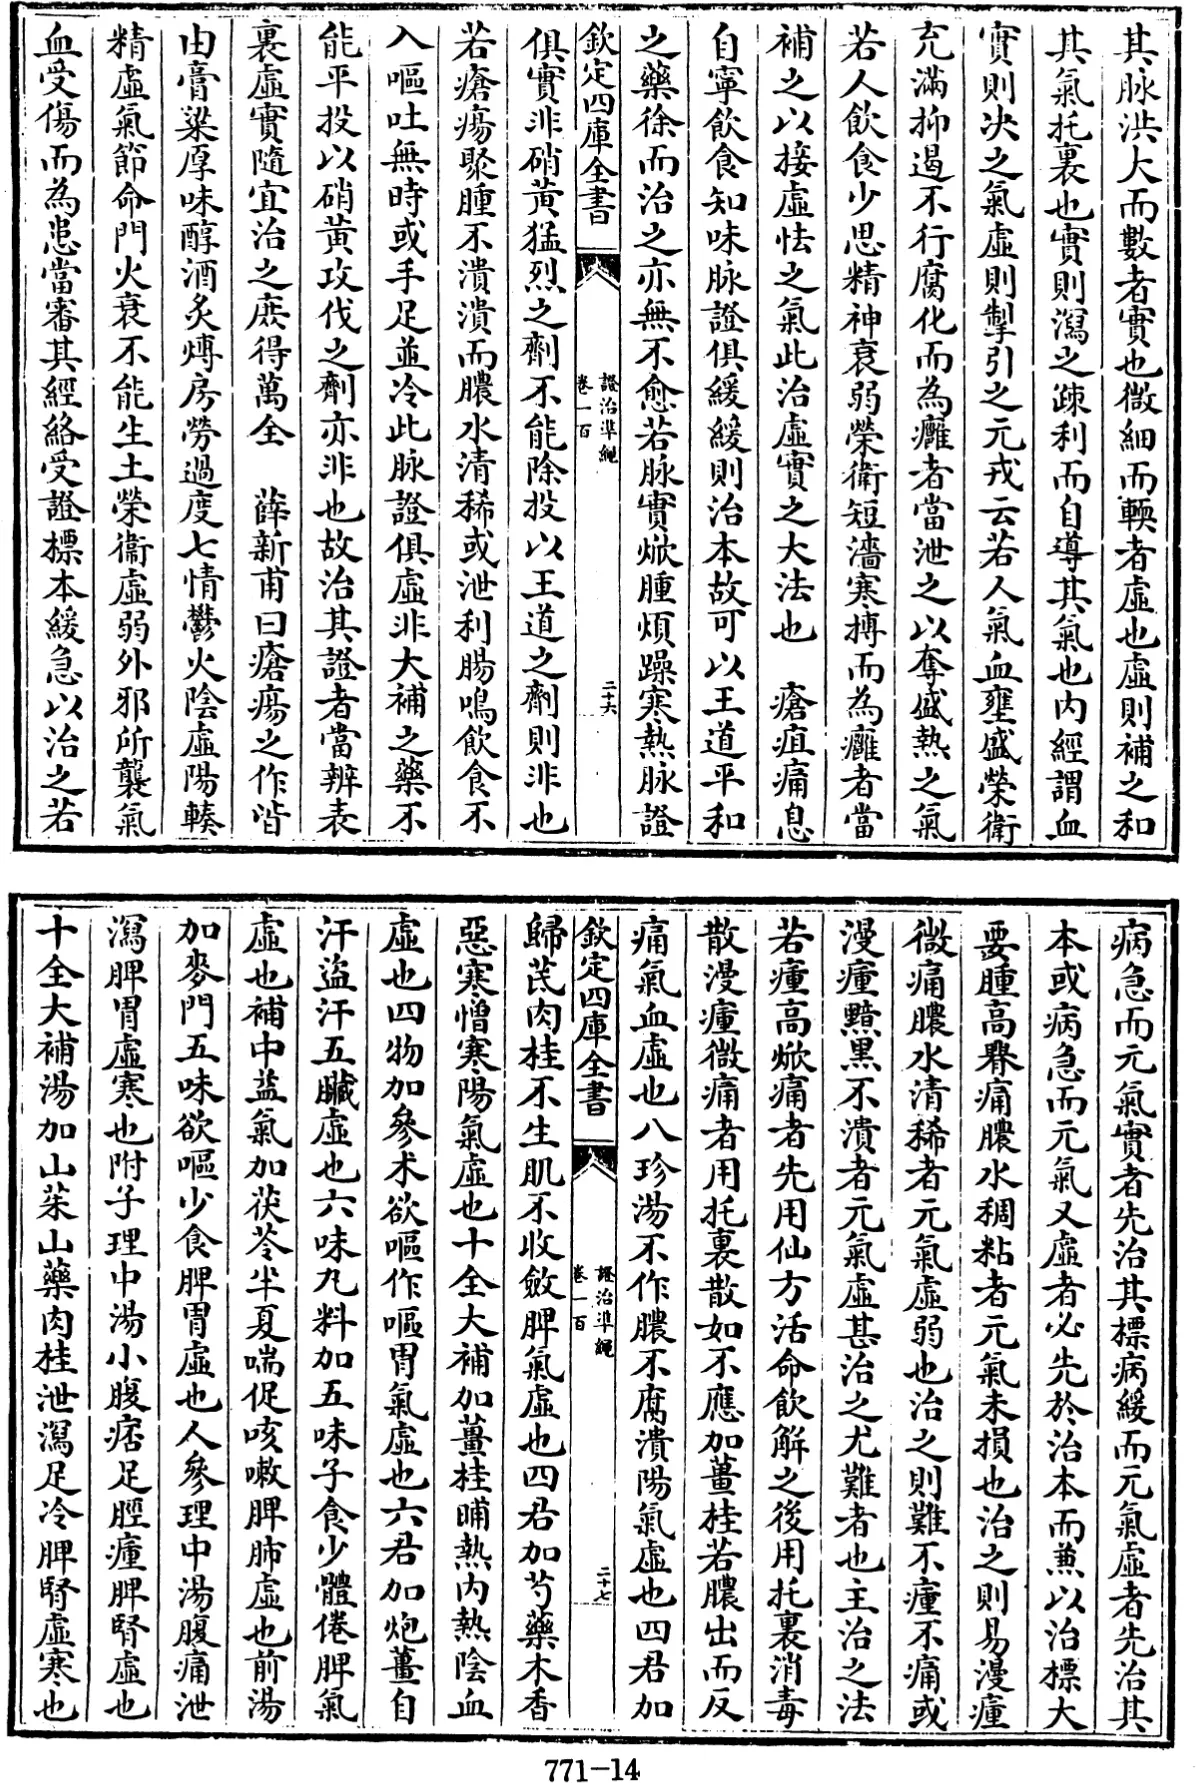 其脉洪大而數者實也微細而輭者虛也虛則補之和
其氣托裏也實則瀉之疎利而自導其氣也内經謂血
實則决之氣虛則掣引之元戎云若人氣血壅盛榮衛
充滿抑遏不行腐化而為癰者當泄之以奪盛熱之氣
若人飲食少思精神衰弱榮衛短濇寒搏而為癰者當
補之以接虛怯之氣此治虛實之大法也　瘡疽痛息
自寧飲食知味脉證俱緩緩則治本故可以王道平和
之藥徐而治之亦無不愈若脉實焮腫煩躁寒熱脉證
欽定四庫全書
證治準繩
卷一百
二十六
俱實非硝黄猛烈之劑不能除投以王道之劑則非也
若瘡瘍聚腫不潰潰而膿水清稀或泄利腸鳴飲食不
入嘔吐無時或手足並冷此脉證俱虛非大補之藥不
能平投以硝黄攻伐之劑亦非也故治其證者當辨表
裏虛實隨宜治之庶得萬全　薛新甫曰瘡瘍之作皆
由膏粱厚味醇酒炙煿房勞過度七情鬱火陰虛陽輳
精虛氣節命門火衰不能生土榮衞虛弱外邪所襲氣
血受傷而為患當審其經絡受證標本緩急以治之若
病急而元氣實者先治其標病緩而元氣虛者先治其
本或病急而元氣又虛者必先於治本而兼以治標大
要腫高㷄痛膿水稠粘者元氣未損也治之則易漫瘇
微痛膿水清稀者元氣虛弱也治之則難不瘇不痛或
漫瘇黯黑不潰者元氣虛甚治之尤難者也主治之法
若瘇高焮痛者先用仙方活命飲解之後用托裏消毒
散漫瘇微痛者用托裏散如不應加薑桂若膿出而反
痛氣血虛也八珍湯不作膿不腐潰陽氣虛也四君加
欽定四庫全書
證治準繩
卷一百
二十七
歸芪肉桂不生肌不收斂脾氣虛也四君加芍藥木香
惡寒憎寒陽氣虛也十全大補加薑桂晡熱内熱陰血
虛也四物加參术欲嘔作嘔胃氣虛也六君加炮薑自
汗盜汗五臟虛也六味丸料加五味子食少體倦脾氣
虛也補中益氣加茯苓半夏喘促咳嗽脾肺虛也前湯
加麥門五味欲嘔少食脾胃虛也人參理中湯腹痛泄
瀉脾胃虛寒也附子理中湯小腹痞足脛瘇脾腎虛也
十全大補湯加山茱山藥肉桂泄瀉足冷脾腎虛寒也
771-14